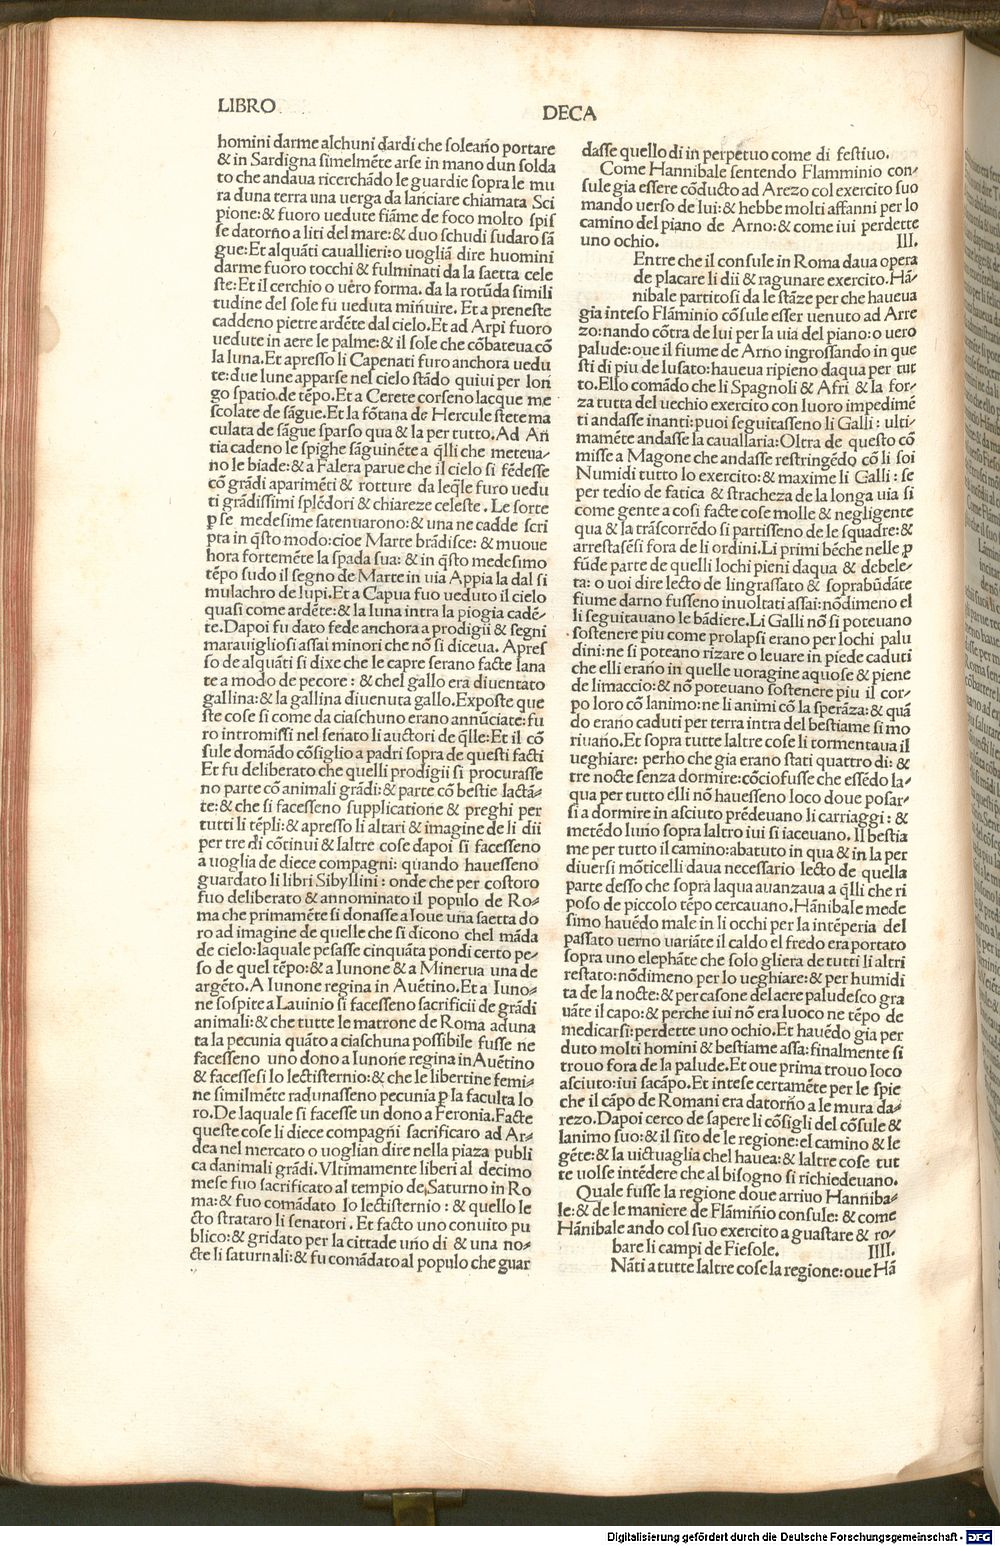 LIBRO
DECA
homini darme alchuni dardi che ſoleano portare
& in Sardigna ſimelmẽte arſe in mano dun ſolda
to che andaua ricerchãdo le guardie ſopra le mu
ra duna terra una uerga da lanciare chiamata Sci
pione:& fuoro uedute fiãme de foco molto ſpiſ
ſe datorno a liti del mare:& duo ſchudi ſudaro ſã
gue:Et alquãti cauallieri:o uogliã dire huomini
darme fuoro tocchi & fulminati da la ſaetta cele
ſte:Et il cerchio o uero forma. da la rotũda ſimili
tudine del ſole fu ueduta minuire. Et a preneſte
caddeno pietre ardẽte dal cielo.Et ad Arpi fuoro
uedute in aere le palme:& il ſole che cõbateua cõ
la luna.Et apreſſo li Capenati furo anchora uedu
te:due lune apparſe nel cielo ſtãdo quiui per lon
go ſpatio de tẽpo.Et a Cerete corſeno lacque me
ſcolate de ſãgue.Et la fõtana de Hercule ſtete ma
culata de ſãgue ſparſo qua & la per tutto.Ad An
tia cadeno le ſpighe ſãguinẽte a q̃lli che meteua⸗
no le biade:& a Falera parue che il cielo ſi fẽdeſſe
cõ grãdi aparimẽti & rotture da leq̃le furo uedu
ti grãdiſſimi ſplẽdori & chiareze celeſte. Le ſorte
ꝑ ſe medeſime ſatenuarono:& una ne cadde ſcri
pta in q̃ſto modo:cioe Marte brãdiſce: & muoue
hora fortemẽte la ſpada ſua: & in q̃ſto medeſimo
tẽpo ſudo il ſegno de Marte in uia Appia la dal ſi
mulachro de lupi.Et a Capua fuo ueduto il cielo
quaſi come ardẽte:& la luna intra la piogia cadẽ⸗
te.Dapoi fu dato fede anchora a prodigii & ſegni
marauiglioſi aſſai minori che nõ ſi diceua. Apreſ
ſo de alquãti ſi dixe che le capre ſerano facte lana
te a modo de pecore: & chel gallo era diuentato
gallina:& la gallina diuenuta gallo.Expoſte que
ſte coſe ſi come da ciaſchuno erano annũciate:fu
ro intromiſſi nel ſenato li auctori de q̃lle:Et il cõ
ſule domãdo cõſiglio a padri ſopra de queſti facti
Et fu deliberato che quelli prodigii ſi procuraſſe
no parte cõ animali grãdi:& parte cõ beſtie lactã⸗
te:& che ſi faceſſeno ſupplicatione & preghi per
tutti li tẽpli:& apreſſo li altari & imagine de li dii
per tre di cõtinui & laltre coſe dapoi ſi faceſſeno
a uoglia de diece compagni: quando haueſſeno
guardato li libri Sibyllini: onde che per coſtoro
fuo deliberato & annominato il populo de Ro⸗
ma che primamẽte ſi donaſſe a Ioue una ſaetta do
ro ad imagine de quelle che ſi dicono chel mãda
de cielo:laquale peſaſſe cinquãta pondi certo pe⸗
ſo de quel tẽpo:& a Iunone & a Minerua una de
argẽto.A Iunone regina in Auẽtino.Et a Iuno⸗
ne ſoſpite a Lauinio ſi faceſſeno ſacrificii de grãdi
animali:& che tutte le matrone de Roma aduna
ta la pecunia quãto a ciaſchuna poſſibile fuſſe ne
faceſſeno uno dono a Iunone regina in Auẽtino
& faceſſeſi lo lectiſternio:& che le libertine femi⸗
ne ſimilmẽte radunaſſeno pecunia ꝑ la faculta lo
ro.De laquale ſi faceſſe un dono a Feronia.Facte
queſte coſe li diece compagni ſacrificaro ad Ar⸗
dea nel mercato o uoglian dire nella piaza publi
ca danimali grãdi.Vltimamente liberi al decimo
meſe fuo ſacrificato al tempio de Saturno in Ro
ma:& fuo comãdato lo lectiſternio: & quello le
cto ſtrataro li ſenatori. Et facto uno conuito pu
blico:& gridato per la cittade uno di & una no⸗
cte li ſaturnali:& fu comãdato al populo che guar
daſſe quello di in perpetuo come di feſtiuo.
Come Hannibale ſentendo Flamminio con⸗
ſule gia eſſere cõducto ad Arezo col exercito ſuo
mando uerſo de lui:& hebbe molti affanni per lo
camino del piano de Arno:& come iui perdette
uno ochio. III.
Entre che il conſule in Roma daua opera
de placare li dii & ragunare exercito.Hã⸗
nibale partitoſi da le ſtãze per che haueua
gia inteſo Flãminio cõſule eſſer uenuto ad Arre
zo:nando cõtra de lui per la uia del piano:o uero
palude:oue il fiume de Arno ingroſſando in que
ſti di piu de luſato:haueua ripieno daqua per tut
to.Ello comãdo che li Spagnoli & Afri & la for⸗
za tutta del uechio exercito con luoro impedimẽ
ti andaſſe inanti:puoi ſeguitaſſeno li Galli: ulti⸗
mamẽte andaſſe la cauallaria:Oltra de queſto cõ
miſſe a Magone che andaſſe reſtringẽdo cõ li ſoi
Numidi tutto lo exercito:& maxime li Galli: ſe
per tedio de fatica & ſtracheza de la longa uia ſi
come gente a coſi facte coſe molle & negligente
qua & la trãſcorrẽdo ſi partiſſeno de le ſquadre:&
arreſtaſẽſi fora de li ordini.Li primi bẽche nelle ꝓ
fũde parte de quelli lochi pieni daqua & debele⸗
ta: o uoi dire lecto de lingraſſato & ſoprabũdãte
fiume darno fuſſeno inuoltati aſſai:nõdimeno el
li ſeguitauano le bãdiere.Li Galli nõ ſi poteuano
ſoſtenere piu come prolapſi erano per lochi palu
dini:ne ſi poteano rizare o leuare in piede caduti
che elli erano in quelle uoragine aquoſe & piene
de limaccio:& nõ poteuano ſoſtenere piu il cor⸗
po loro cõ lanimo:ne li animi cõ la ſperãza:& quã
do erano caduti per terra intra del beſtiame ſi mo
riuano.Et ſopra tutte laltre coſe li tormentaua il
ueghiare: perho che gia erano ſtati quattro di: &
tre nocte ſenza dormire:cõcioſuſſe che eſſẽdo la⸗
qua per tutto elli nõ haueſſeno loco doue poſar⸗
ſi a dormire in aſciuto prẽdeuano li carriaggi: &
metẽdo luno ſopra laltro iui ſi iaceuano. Il beſtia
me per tutto il camino:abatuto in qua & in la per
diuerſi mõticelli daua neceſſario lecto de quella
parte deſſo che ſopra laqua auanzaua a q̃lli che ri
poſo de piccolo tẽpo cercauano.Hãnibale mede
ſimo hauẽdo male in li occhi per la intẽperia del
paſſato uerno uariãte il caldo el fredo era portato
ſopra uno elephãte che ſolo gliera de tutti li altri
reſtato:nõdimeno per lo ueghiare:& per humidi
ta de la nocte:& per caſone del aere paludeſco gra
uãte il capo:& perche iui nõ era luoco ne tẽpo de
medicarſi:perdette uno ochio.Et hauẽdo gia per
duto molti homini & beſtiame aſſa:finalmente ſi
trouo fora de la palude.Et oue prima trouo loco
aſciuto:iui ſacãpo.Et inteſe certamẽte per le ſpie
che il cãpo de Romani era datorno a le mura da⸗
rezo.Dapoi cerco de ſapere li cõſigli del cõſule &
lanimo ſuo:& il ſito de le regione:el camino & le
gẽte:& la uictuaglia chel hauea:& laltre coſe tut
te uolſe intẽdere che al biſogno ſi richiedeuano.
Quale fuſſe la regione doue arriuo Hanniba⸗
le:& de le maniere de Flãminio conſule: & come
Hãnibale ando col ſuo exercito a guaſtare & ro⸗
bare li campi de Fieſole. IIII.
Nãti a tutte laltre coſe la regione:oue Hã
Digitalisierung gefördert durch die Deutsche Forschungsgemeinschaft - DFG